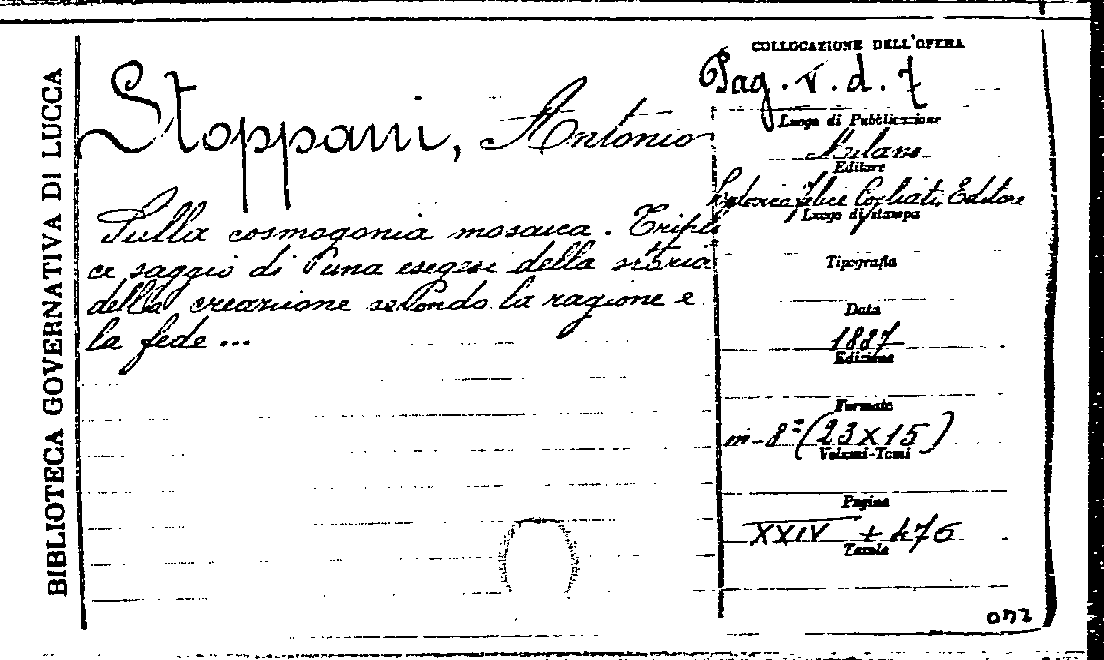 BIBLIOTECA GOVERNATIVA DI LUCCA
Stoppani, Antonio
Sulla cosmogonia mosaica. Tripli
ce saggio di una esegesi della storia
della creazione secondo la ragione e
la fede...
COLLOCAZIONE DELL'OPERA
Pag. V. d. 7
Luogo di Pubblicazione
Milano
Editore
Felice Cogliati, Editore
Luogo di stampa
Tipografia
Data
1887
Edizione
Formato
in-8º (23x15)
Volumi-Tomi
Pagine
XXIV + 476
Tavole